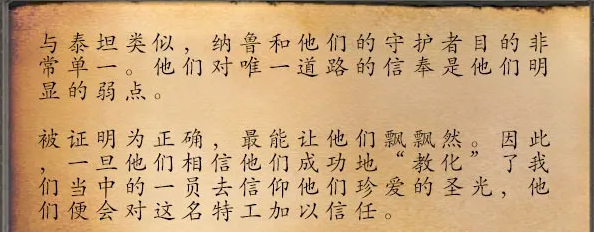 与泰坦类似，纳鲁和他们的守护者目的非
常单一。他们对唯一道路的信奉是他们明
显的弱点。
被证明为正确，最能让他们飘飘然。因此
，一旦他们相信他们成功地“教化”了我
们当中的一员去信仰他们珍爱的圣光，他
们便会对这名特工加以信任。